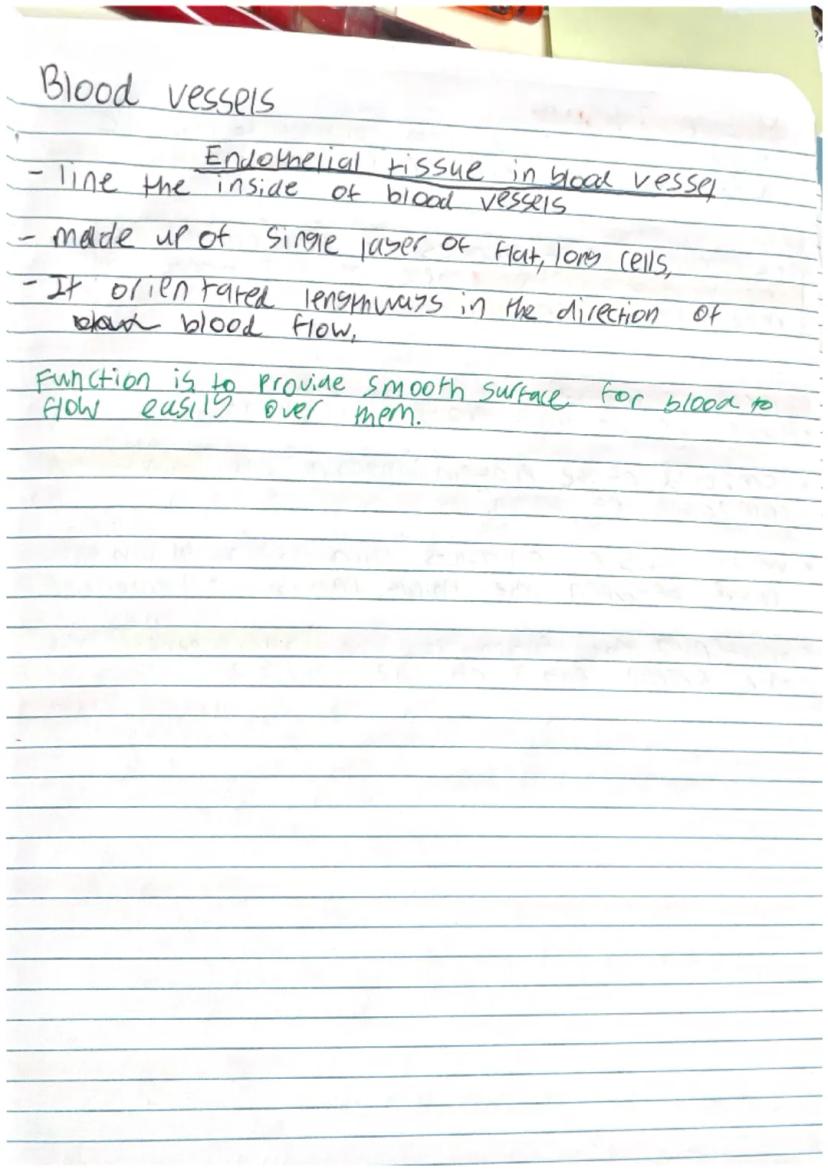 Blood vessels
Endothelial tissue in blood vessel
- line the inside of blood vessels
- made up of single layer of flat, long cells,
- It orientated lengthways in the direction of
blood flow,
Function is to provide smooth surface for blood to
flow easily over them.